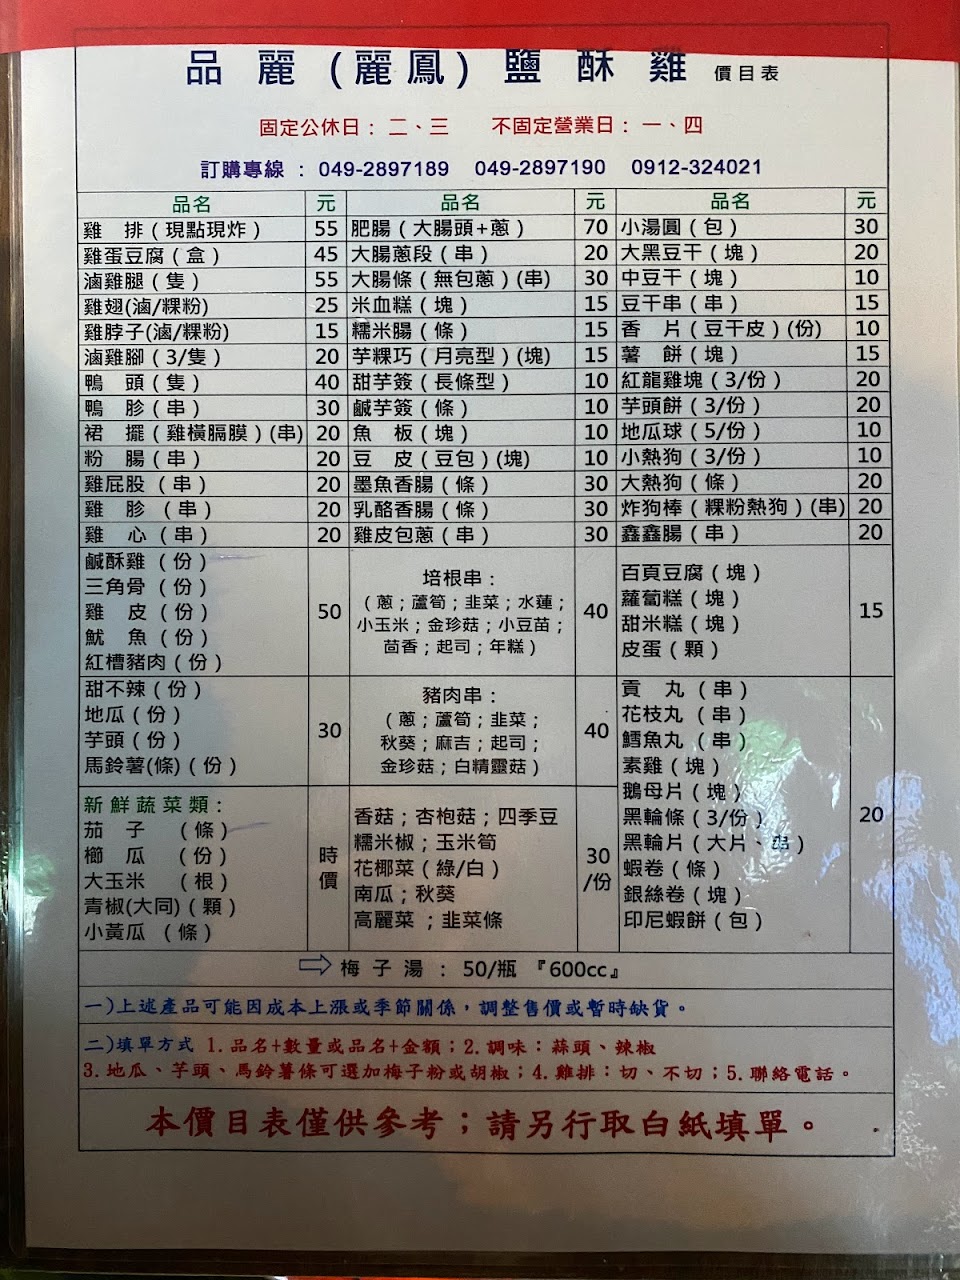 品 麗 (麗鳳) 鹽 酥 雞 價目表
固定公休日: 二、三 不固定營業日: 一、四
訂購專線 : 049-2897189 049-2897190 0912-324021
品名 元 品名 元 品名 元
雞 排 (現點現炸) 55 肥腸 (大腸頭+蔥) 70 小湯圓 (包) 30
雞蛋豆腐 (盒) 45 大腸蔥段 (串) 20 大黑豆干 (塊) 20
滷雞腿 (隻) 55 大腸條 (無包蔥) (串) 30 中豆干 (塊) 10
雞翅(滷/粿粉) 25 米血糕 (塊) 15 豆干串 (串) 15
雞脖子(滷/粿粉) 15 糯米腸 (條) 15 香 片 (豆干皮) (份) 10
滷雞腳 (3/隻) 20 芋粿巧 (月亮型) (塊) 15 薯 餅 (塊) 15
鴨 頭 (隻) 40 甜芋簽 (長條型) 10 紅龍雞塊 (3/份) 20
鴨 胗 (串) 30 鹹芋簽 (條) 10 芋頭餅 (3/份) 20
裙 擺 (雞橫膈膜) (串) 20 魚 板 (塊) 10 地瓜球 (5/份) 10
粉 腸 (串) 20 豆 皮 (豆包) (塊) 10 小熱狗 (3/份) 10
雞屁股 (串) 20 墨魚香腸 (條) 30 大熱狗 (條) 20
雞 胗 (串) 20 乳酪香腸 (條) 30 炸狗棒 (粿粉熱狗) (串) 20
雞 心 (串) 20 雞皮包蔥 (串) 30 鑫鑫腸 (串) 20
鹹酥雞 (份)
三角骨 (份)
雞 皮 (份)
魷 魚 (份)
紅槽豬肉 (份)
50
培根串:
(蔥;蘆筍;韭菜;水蓮;
小玉米;金珍菇;小豆苗;
茴香;起司;年糕)
40
百頁豆腐 (塊)
蘿蔔糕 (塊)
甜米糕 (塊)
皮蛋 (顆)
15
甜不辣 (份)
地瓜 (份)
芋頭 (份)
馬鈴薯(條) (份)
30
豬肉串:
(蔥;蘆筍;韭菜;
秋葵;麻吉;起司;
金珍菇;白精靈菇)
40
貢 丸 (串)
花枝丸 (串)
鱈魚丸 (串)
素雞 (塊)
鵝母片 (塊)
黑輪條 (3/份)
黑輪片 (大片、串)
蝦卷 (條)
銀絲卷 (塊)
印尼蝦餅 (包)
20
新鮮蔬菜類:
茄 子 (條)
櫛 瓜 (份)
大玉米 (根)
青椒(大同) (顆)
小黃瓜 (條)
時
價
香菇;杏枹菇;四季豆
糯米椒;玉米筍
花椰菜 (綠/白)
南瓜;秋葵
高麗菜 ;韭菜條
30
/份
⇨ 梅 子 湯 : 50/瓶 『600cc』
一)上述產品可能因成本上漲或季節關係,調整售價或暫時缺貨。
二)填單方式 1.品名+數量或品名+金額;2.調味:蒜頭、辣椒
3.地瓜、芋頭、馬鈴薯條可選加梅子粉或胡椒;4.雞排:切、不切;5.聯絡電話。
本價目表僅供參考;請另行取白紙填單。